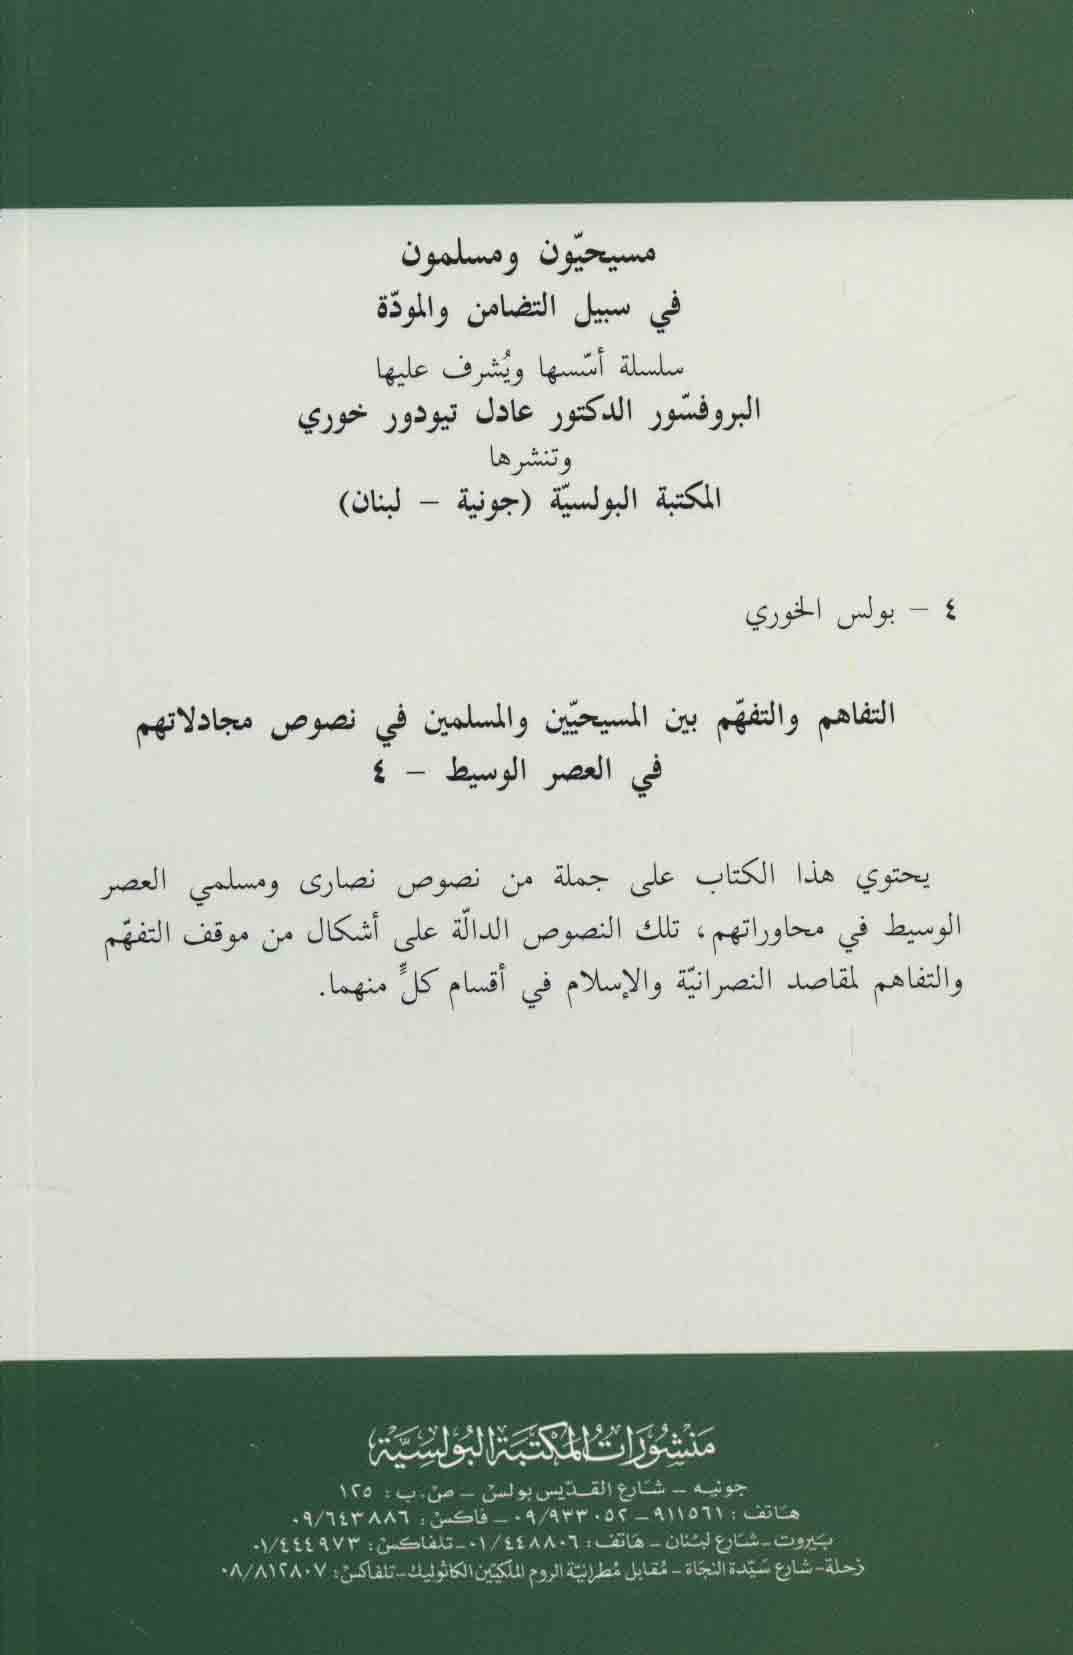 مسيحيّون ومسلمون
في سبيل التضامن والمودّة
سلسلة أسّسها ويُشرف عليها
البروفسّور الدكتور عادل تيودور خوري
وتنشرها
المكتبة البولسيّة (جونية – لبنان)
٤ – بولس الخوري
التفاهم والتفهّم بين المسيحيّين والمسلمين في نصوص مجادلاتهم
في العصر الوسيط – ٤
يحتوي هذا الكتاب على جملة من نصوص نصارى ومسلمي العصر
الوسيط في محاوراتهم، تلك النصوص الدالّة على أشكال من موقف التفهّم
والتفاهم لمقاصد النصرانيّة والإسلام في أقسام كلٍّ منهما.
مَنشورَات المكتبَة البولسيَّة
جونيه – شارع القدّيس بولس – ص. ب: ١٢٥
هاتف: ٩١١٥٦١ – ٠٩/٩٣٣٠٥٢ – فاكس: ٠٩/٦٤٣٨٨٦
بيروت – شارع لبنان – هاتف: ٠١/٤٤٨٨٠٦ – تلفاكس: ٠١/٤٤٤٩٧٣
زحلة – شارع سيّدة النجاة – مقابل مطرانيّة الروم الملكيّين الكاثوليك – تلفاكس: ٠٨/٨١٢٨٠٧